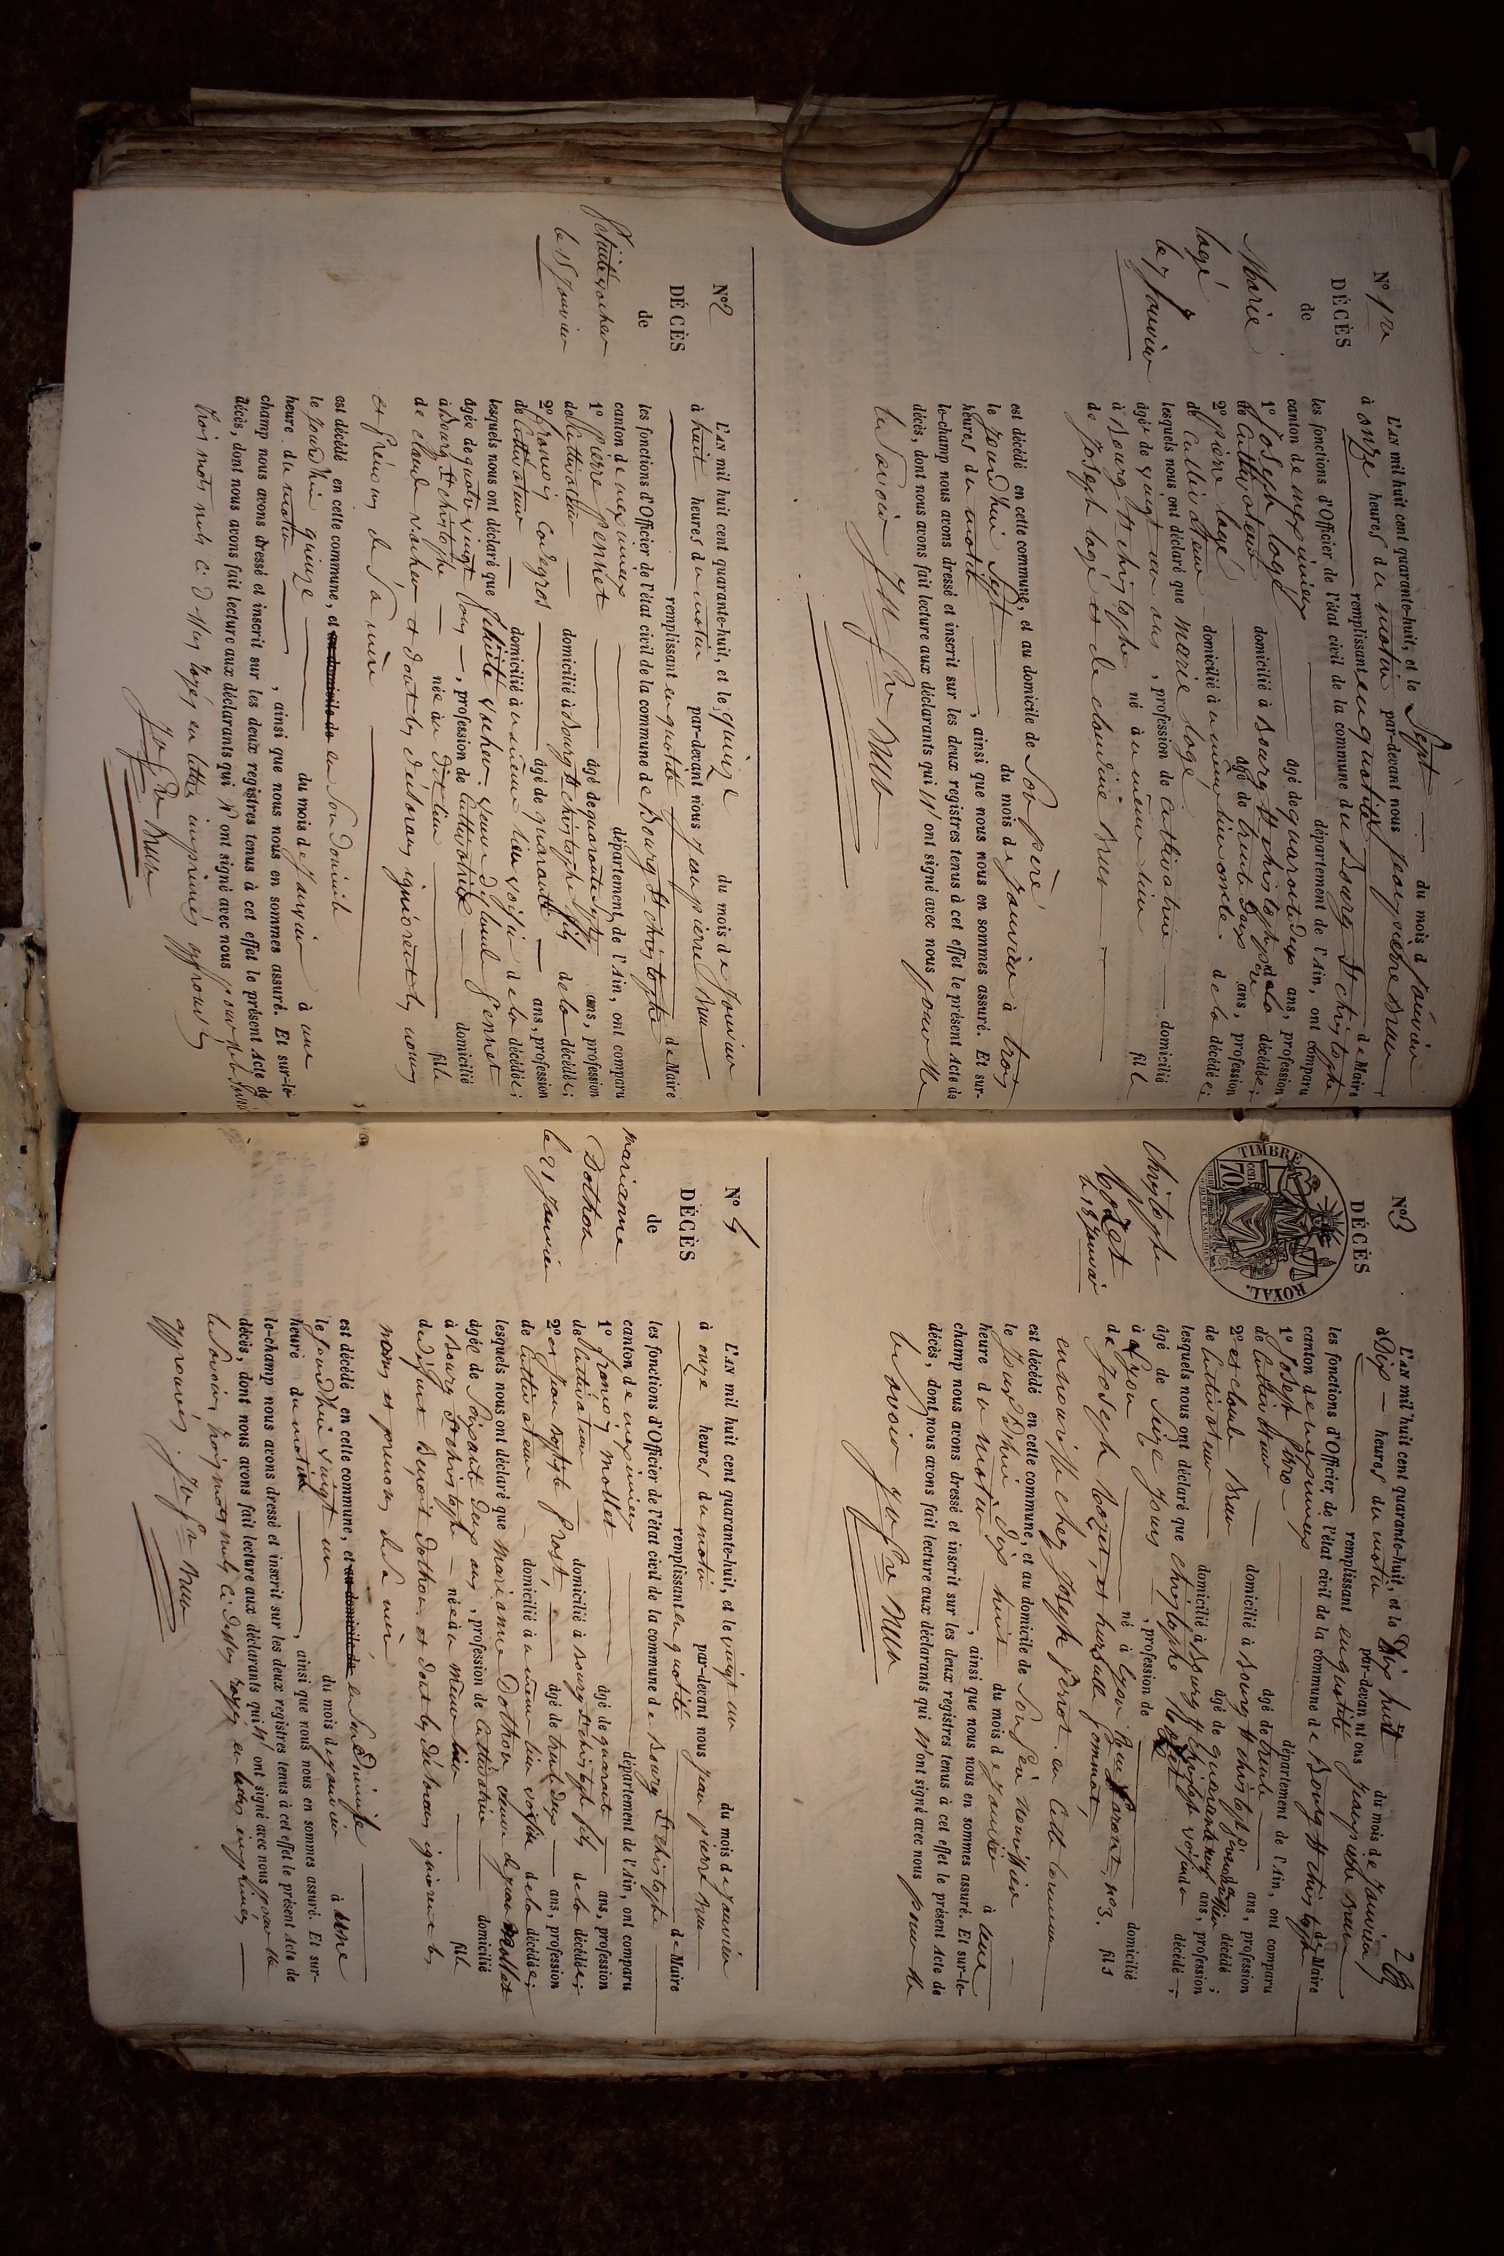 N° 1er
DÉCÈS
de
Marie
logé
le 7 Janvier
L'AN mil huit cent quarante-huit, et le Sept du mois de Janvier
à onze heures du matin par-devant nous jean pierre Brun
remplissant en qualité de Maire
les fonctions d'Officier de l'état civil de la commune du Bourg St christophe
canton de meximieux département de l'Ain, ont comparu
1° Joseph logé âgé de quarante deux ans, profession
de Cultivateur domicilié à Bourg St christophe père de la décédée;
2° pierre logé âgé de trente deux ans, profession
de Cultivateur domicilié à même lieu oncle de la décédée;
lesquels nous ont déclaré que Marie logé
âgé de vingt un ans, profession de Cultivatrice domicilié
à Bourg St christophe né à u même lieu fille
de Joseph logé et de claudine Brun
est décédé en cette commune, et au domicile de Son père
le jourd'hui Sept du mois de janvier à trois
heures du matin, ainsi que nous nous en sommes assuré. Et sur-
le-champ nous avons dressé et inscrit sur les deux registres tenus à cet effet le présent Acte de
décès, dont nous avons fait lecture aux déclarants qui n'ont signé avec nous pour ne
le Savoir
N° 2
DÉCÈS
de
le 15 Janvier
L'AN mil huit cent quarante-huit, et le quinze du mois de Janvier
à huit heures du matin par-devant nous jean pierre Brun
remplissant en qualité de Maire
les fonctions d'Officier de l'état civil de la commune de Bourg St christophe
canton de meximieux département de l'Ain, ont comparu
1° pierre pennet âgé de quarante Sept ans, profession
de Cultivateur domicilié à Bourg St christophe fils de la décédée;
2° françois Cadegros âgé de quarante ans, profession
de Cultivateur domicilié à u même lieu voisin de la décédée;
lesquels nous ont déclaré que
âgée de quatre vingt ans, profession de Cultivatrice domicilié
à Bourg St christophe née à u dit lieu fille
de claude et dont les déclarans ignorent les noms
et prénoms de Sa mère
est décédé en cette commune, et au domicile de en Son domicile
le jourd'hui quinze du mois de janvier à une
heure du matin, ainsi que nous nous en sommes assuré. Et sur-le-
champ nous avons dressé et inscrit sur les deux registres tenus à cet effet le présent Acte de
décès, dont nous avons fait lecture aux déclarants qui n'ont signé avec nous pour ne le Savoir
trois mots nuls ci dessus rayés en lettre imprimés approuvés
N° 3
DÉCÈS
Christophe
Cozet
le 18 Janvier
TIMBRE ROYAL.
70 cen
L'AN mil huit cent quarante-huit, et le Dix huit du mois de Janvier
à Dix heures du matin par-devant nous jean pierre Brun
remplissant en qualité de Maire
les fonctions d'Officier de l'état civil de la commune de Bourg St christophe
canton de meximieux département de l'Ain, ont comparu
1° Joseph âgé de trente ans, profession
de Cultivateur domicilié à Bourg St christophe décédé
2° et claude Brun âgé de quarante neuf ans, profession
de Cultivateur domicilié à Bourg St christophe voisin du décédé;
lesquels nous ont déclaré que christophe Cozet
âgé de Seize jours, profession de domicilié
à Lyon né à Lyon n° 3. fils
de Joseph Cozet et
en nourrice chez Joseph en cette commune
est décédé en cette commune, et au domicile de Son père nourricier
le jourd'hui dix huit du mois de janvier à une
heure du matin, ainsi que nous nous en sommes assuré. Et sur-le-
champ nous avons dressé et inscrit sur les deux registres tenus à cet effet le présent Acte de
décès, dont nous avons fait lecture aux déclarants qui n'ont signé avec nous pour ne
le Savoir
N° 4
DÉCÈS
de
Marianne
Dothon
le 21 Janvier
L'AN mil huit cent quarante-huit, et le vingt un du mois de janvier
à onze heures du matin par-devant nous jean pierre Brun
remplissant en qualité de Maire
les fonctions d'Officier de l'état civil de la commune de Bourg St christophe
canton de meximieux département de l'Ain, ont comparu
1° françois Mollet âgé de quarante ans, profession
de Cultivateur domicilié à Bourg St christophe fils de la décédée;
2° et jean baptiste Prost, âgé de trente deux ans, profession
de Cultivateur domicilié à u même lieu voisin de la décédée;
lesquels nous ont déclaré que Marianne Dothon veuve de jean Mollet
âgée de Soixante deux ans, profession de Cultivatrice domicilié
à Bourg St christophe née à u même lieu fille
de défunt Benoit Dothon, et dont les déclarans ignorent les
noms et prénoms de Sa mère
est décédé en cette commune, et au domicile de en Son domicile
le jourd'hui vingt un du mois de janvier à une
heure du matin, ainsi que nous nous en sommes assuré. Et sur-
le-champ nous avons dressé et inscrit sur les deux registres tenus à cet effet le présent Acte de
décès, dont nous avons fait lecture aux déclarants qui n'ont signé avec nous pour ne
le Savoir, trois mots nuls ci dessus rayés en lettres imprimés
approuvés.